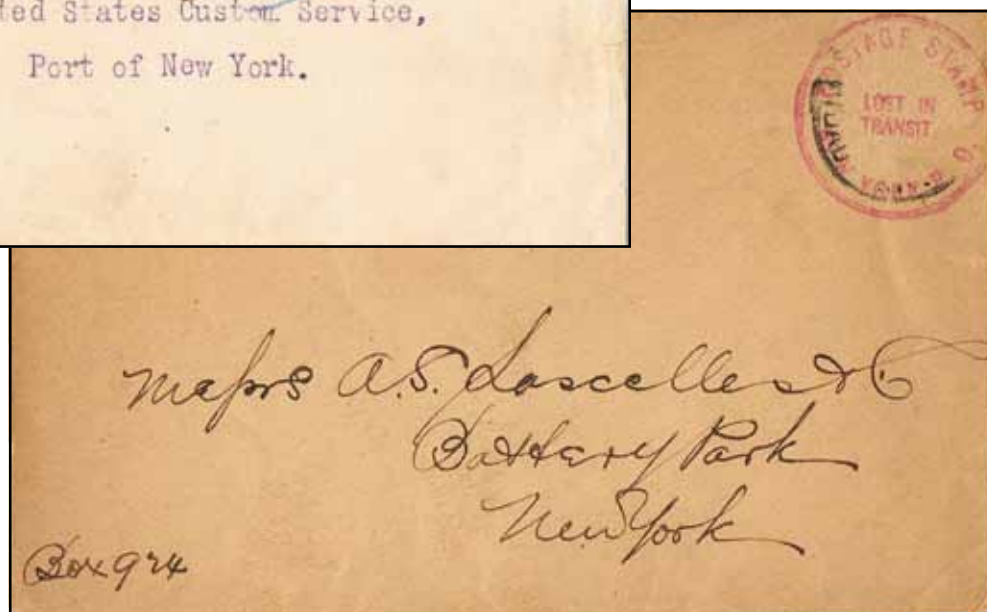 ted States Custom Service,
Port of New York.
POSTAGE STAMP
LOST IN
TRANSIT
N.Y.
Messrs A.S. Lascelles & Co
Battery Park
New York
Box 924